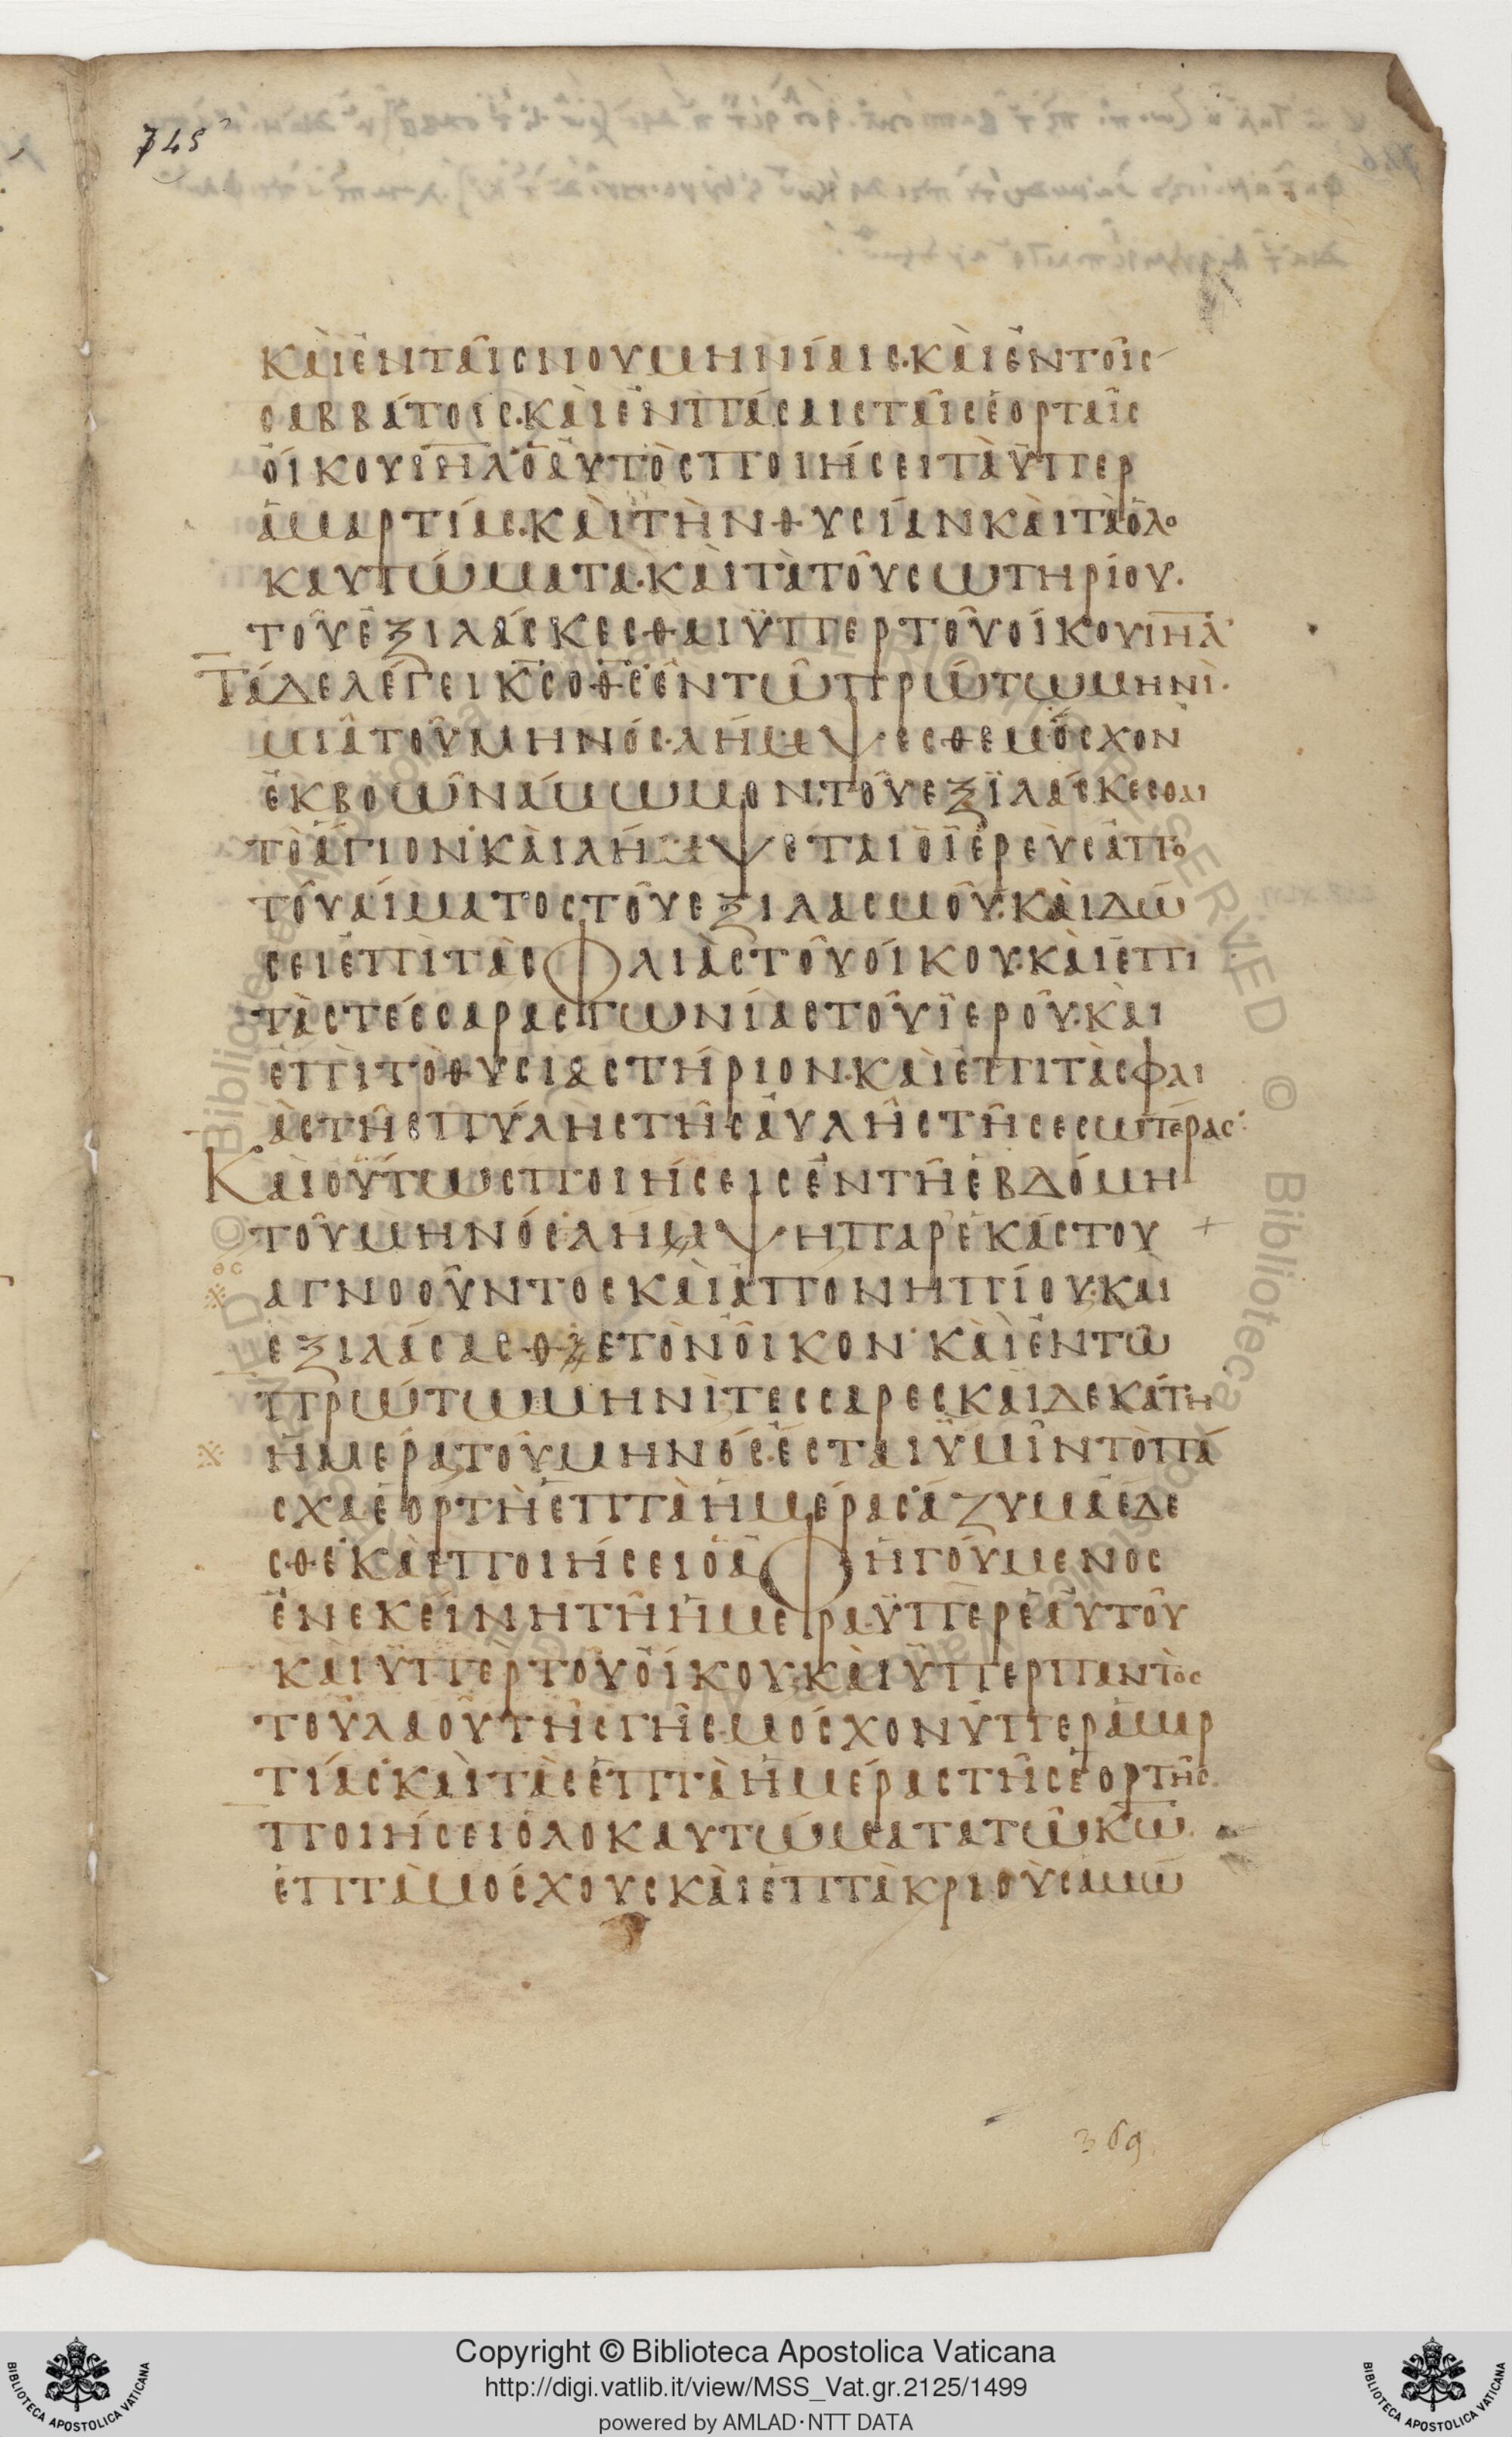 745
ΚᾺΙἘΝΤΑῖϹΝΟΥΜΗΝΊΑΙϹ·ΚᾺΙἘΝΤΟῖϹ
ϹΑΒΒΆΤΟΙϹ·ΚᾺΙἘΝΠΆϹΑΙϹΤΑῖϹἙΟΡΤΑῖϹ
ΟἼΚΟΥΙΗ̅Λ̅ὁἈΥΤῸϹΠΟΙΉϹΕΙΤᾺὙΠΕΡ
ἉΜΑΡΤΊΑϹ·ΚᾺΙΤῊΝΘΥϹΊΑΝΚΑῚΤᾺὉΛΟ
ΚΑΥΤΏΜΑΤΑ·ΚΑῚΤᾺΤΟῦϹΩΤΗΡΊΟΥ·
ΤΟῦἘΞΙΛΆϹΚΕϹΘΑΙὙΠΕΡΤΟῦΟἼΚΟΥΙΗ̅Λ̅·
ΤΆΔΕΛΈΓΕΙΚ̅Ϲ̅ΟΘ̅Ϲ̅ἘΝΤῶΠΡΏΤΩΜΗΝῚ·
ΜΙᾶΤΟῦΜΗΝΌϹ·ΛΉΜΨΕϹΘΕΜΌϹΧΟΝ
ἘΚΒΟῶΝἌΜΩΜΟΝ·ΤΟῦΕΞΪΛΆϹΚΕϹΘΑΙ
ΤῸἍΓΙΟΝ·ΚᾺΙΛΉΜΨΕΤΑΙὉἹΕΡΕῪϹἈΠΌ
ΤΟῦΑἽΜΑΤΟϹΤΟῦΕΞΙΛΑϹΜΟῦ·ΚΑῚΔΏ
ϹΕΙἘΠῚΤᾺϹΦΛΙᾺϹΤΟῦΟἼΚΟΥ·ΚᾺΙἘΠΙ
ΤᾺϹΤΈϹϹΑΡΑϹΓΩΝΊΑϹΤΟῦἹΕΡΟῦ·ΚᾺΙ
ἘΠῚΤῸΘΥϹΙΑϹΤΉΡΙΟΝ·ΚΑῚἘΠῚΤᾺϹΦΛΙ
ᾺϹΤῆϹΠΎΛΗϹΤῆϹἈΥΛῆϹΤῆϹΕϹΩΤΈΡΑϹ·
ΚΑῚΟὝΤΩϹΠΟΙΉϹΕΙϹἘΝΤῆἙΒΔΌΜΗ
ΤΟῦΜΗΝΌϹΛΉΜΨΗΠΑΡἙΚΆϹΤΟΥ
ΑΓΝΟΟῦΝΤΟϹΚᾺΙἈΠΟΝΗΠΊΟΥ·ΚΑῚ
ΕΞΙΛΆϹΑϹΘΕΤῸΝΟἶΚΟΝ·ΚᾺΙἘΝΤῶ
ΠΡΏΤΩΜΗΝῚΤΕϹϹΑΡΕϹΚΑΙΔΕΚΆΤΗ
ἩΜΈΡΑΤΟῦΜΗΝΌϹ·ἜϹΤΑΙὙΜῖΝΤῸΠΆ
ϹΧΑἙΟΡΤῊἙΠΤᾺἩΜΈΡΑϹἌΖΥΜΑἜΔΕ
ϹΘΕ·ΚᾺΙΠΟΙΉϹΕΙὉἈΦΗΓΟΎΜΕΝΟϹ
ἘΝΕΚΕΊΝΗΤῆἩΜΕΡΑ·ὙΠῈΡἙΑΥΤΟῦ
ΚΑῚὙΠΕΡΤΟῦΟἼΚΟΥ·ΚΑῚὙΠΕΡΠΑΝΤῸϹ
ΤΟῦΛΑΟῦΤῆϹΓῆϹ·ΜΌϹΧΟΝὙΠΕΡἉΜΡ
ΤΊΑϹ·ΚΑῚΤᾺϹἙΠΤᾺἩΜΈΡΑϹΤῆϹἙΟΡΤῆϹ·
ΠΟΙΉϹΕΙὉΛΟΚΑΥΤΏΜΑΤΑΤῶΚ̅Ω̅·
ἙΠΤᾺΜΌϹΧΟΥϹΚᾺΙἙΠΤᾺΚΡΙΟῪϹΑΜΏ
369
Copyright © Biblioteca Apostolica Vaticana
http://digi.vatlib.it/view/MSS_Vat.gr.2125/1499
powered by AMLAD·NTT DATA
BIBLIOTECA APOSTOLICA VATICANA
BIBLIOTECA APOSTOLICA VATICANA